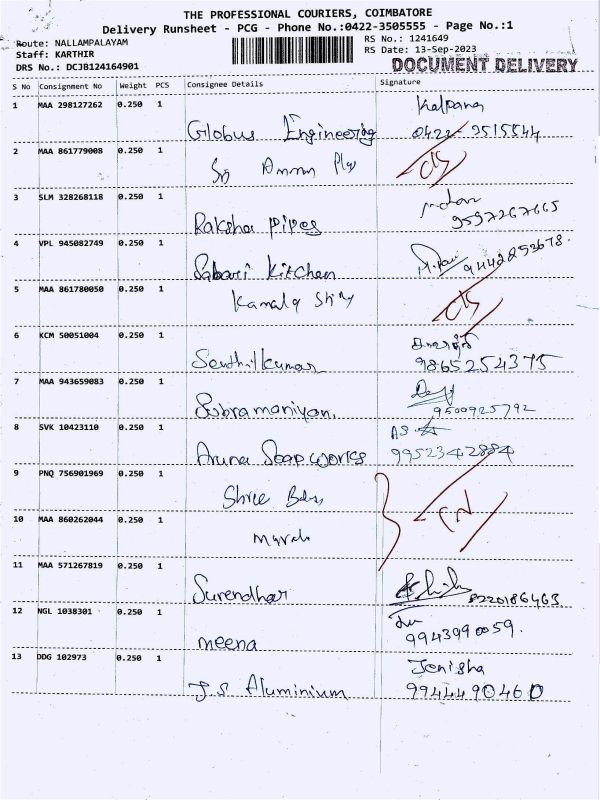 THE PROFESSIONAL COURIERS, COIMBATORE
Delivery Runsheet - PCG - Phone No.:0422-3505555 - Page No.:1
Route: NALLAMPALAYAM RS No.: 1241649
Staff: KARTHIR RS Date: 13-Sep-2023
DRS No.: DCJB124164901 DOCUMENT DELIVERY
S No Consignment No Weight PCS Consignee Details Signature
1 MAA 298127262 0.250 1 Kalpana
Globus Engineering 0422-2515544
2 MAA 861779008 0.250 1
Sri Amman
3 SLM 328268118 0.250 1
Raksha Pipes 9597267665
4 VPL 945082749 0.250 1
Sabari Kitchen 9442852678.
5 MAA 861780050 0.250 1
Kamala
6 KCM 50051004 0.250 1
Senthilkumar 9865254375
7 MAA 943659083 0.250 1
Subramaniyan. 9500925792
8 SVK 10423110 0.250 1 AS
Aruna Soap works 9952342884
9 PNQ 756901969 0.250 1
Shree
10 MAA 860262044 0.250 1
11 MAA 571267819 0.250 1
Surendhar 8220186463
12 NGL 1038301 0.250 1
meena 9943990059.
13 DDG 102973 0.250 1 Jenisha
J.S Aluminium 9944490460